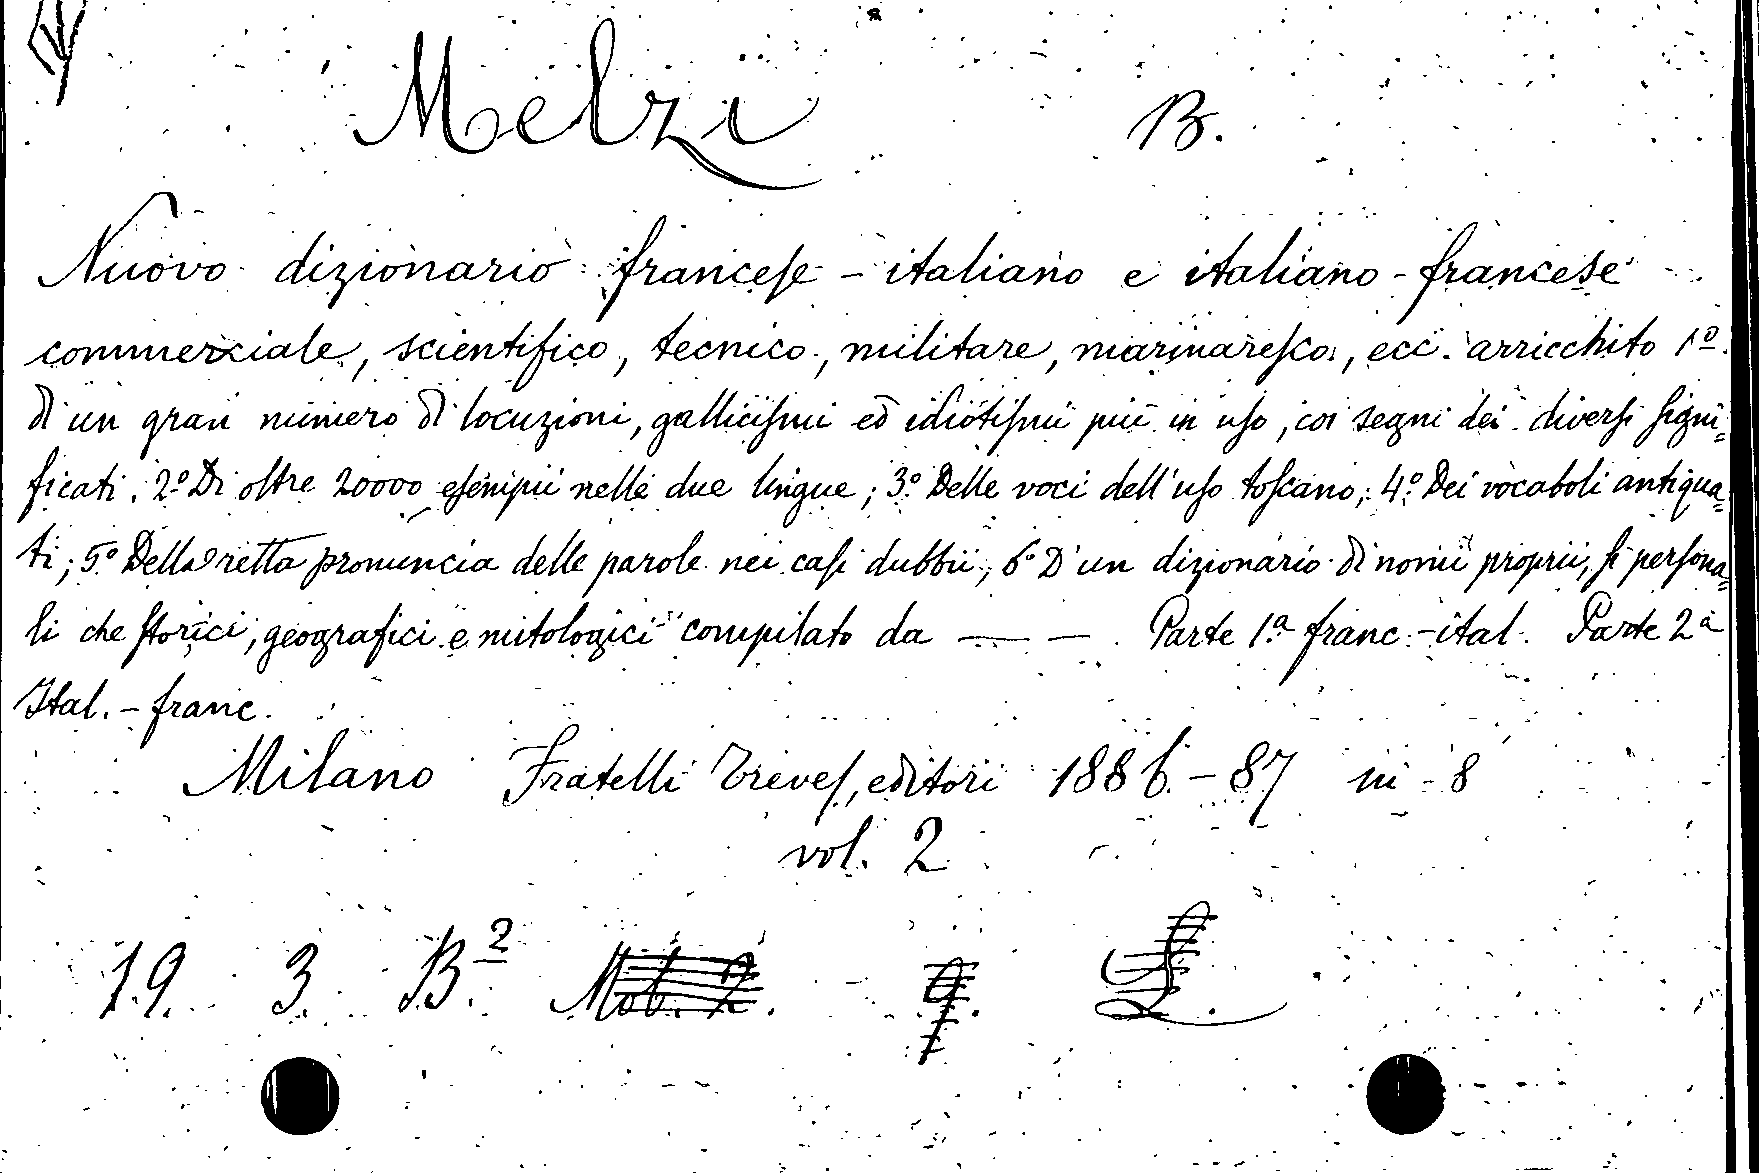 Melzi B.
Nuovo dizionario francese - italiano e italiano - francese
commerciale, scientifico, tecnico, militare, marinaresco, ecc. arricchito 1º.
di un gran numero di locuzioni, gallicismi ed idiotismi più in uso, coi segni dei diversi signi=
ficati. 2º Di oltre 20000 esempii nelle due lingue; 3º Delle voci dell'uso toscano; 4º Dei vocaboli antiqua=
ti; 5º Della retta pronuncia delle parole nei casi dubbii; 6º D'un dizionario di nomi proprii, si persona=
li che storici, geografici e mitologici compilato da — — . Parte 1ª franc.-ital. Parte 2ª
Ital. - franc.
Milano Fratelli Treves, editori 1886. - 87 in - 8
vol. 2
19. 3. B². Mob. 2. 9.